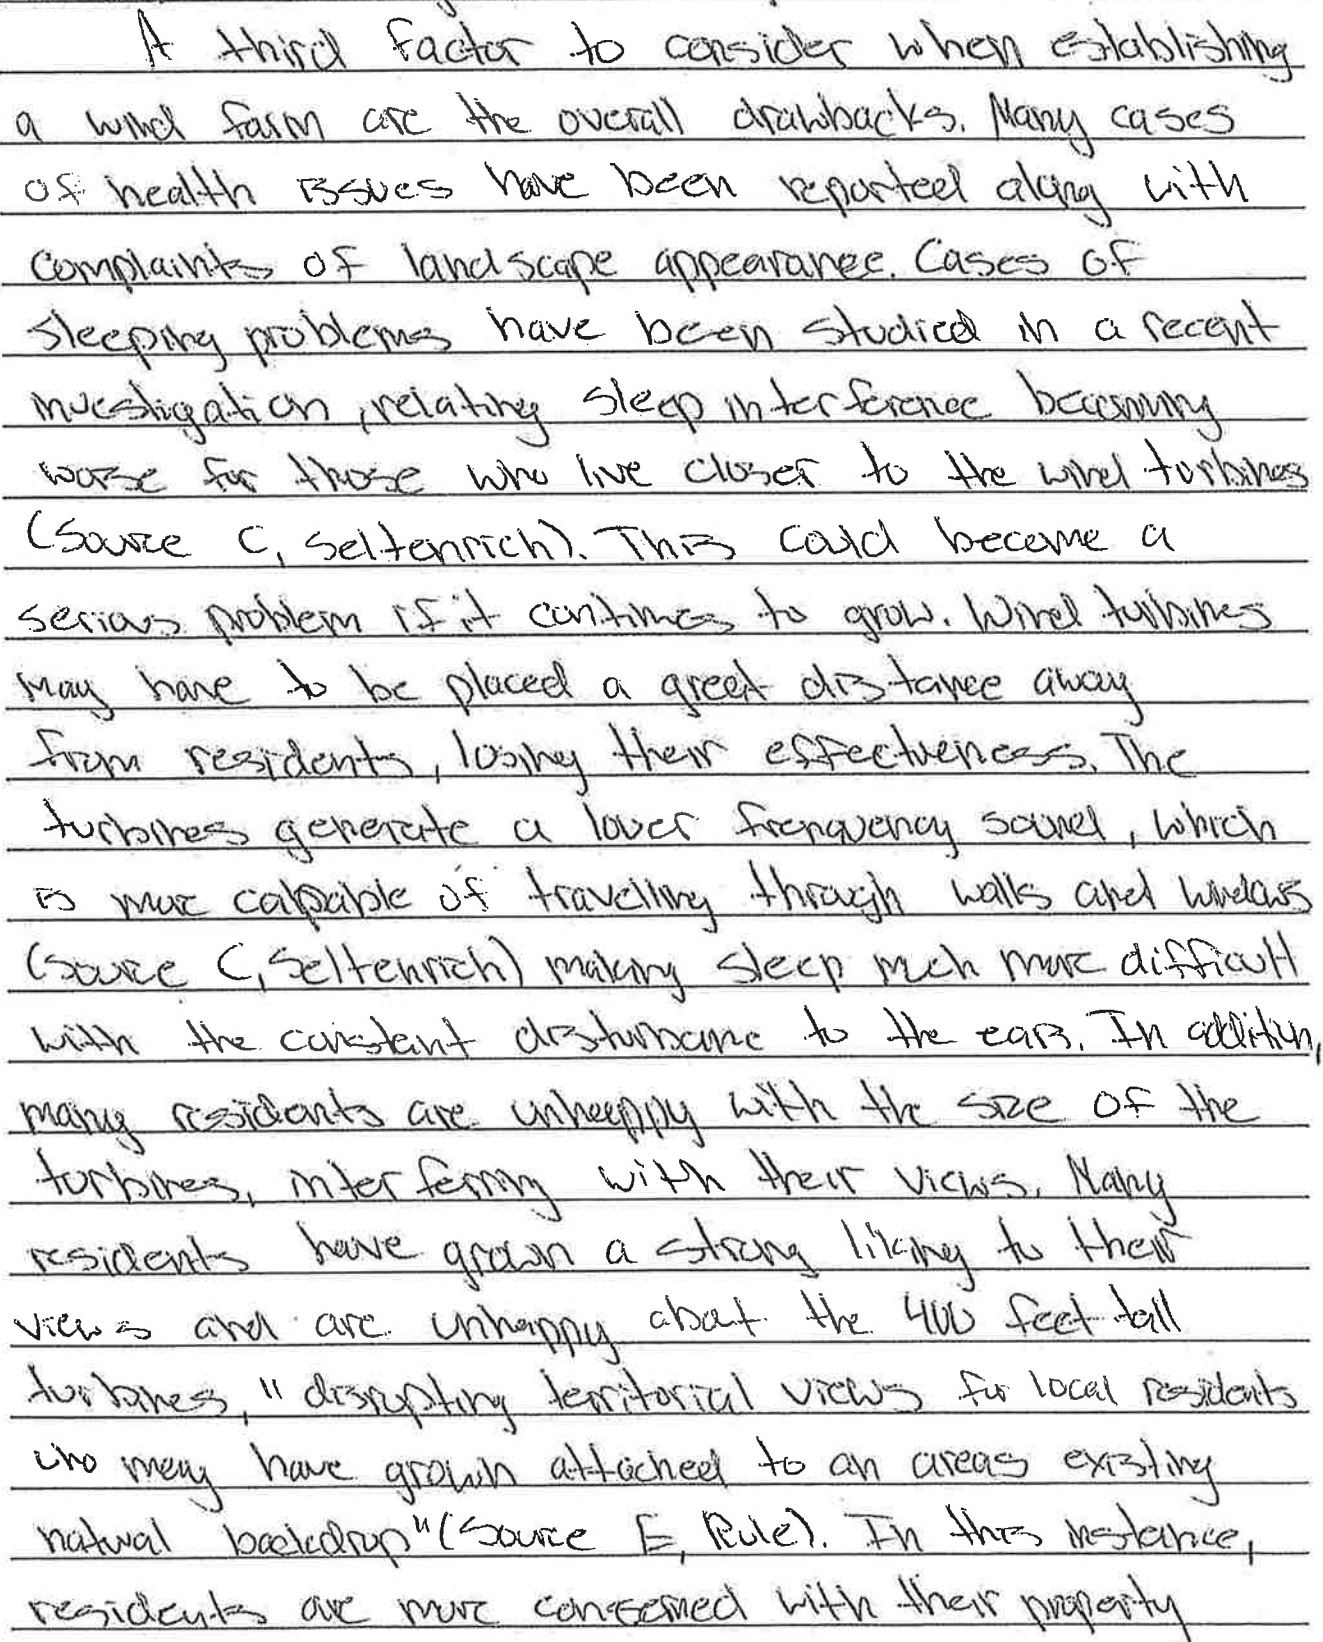 A third factor to consider when establishing
a wind farm are the overall drawbacks. Many cases
of health issues have been reported along with
complaints of landscape appearance. Cases of
sleeping problems have been studied in a recent
investigation, relating sleep interference becoming
worse for those who live closer to the wind turbines
(Source C, Seltenrich). This could become a
serious problem if it continues to grow. Wind turbines
may have to be placed a great distance away
from residents, losing their effectiveness. The
turbines generate a lower frenquency sound, which
is more calpable of travelling through walls and windows
(Source C, Seltenrich) making sleep much more difficult
with the constant disturbance to the ears. In addition,
many residents are unhappy with the size of the
turbines, interferring with their views. Many
residents have grown a strong liking to their
views and are unhappy about the 400 feet tall
turbines, "disrupting territorial views for local residents
who may have grown attached to an areas existing
natural backdrop" (Source E, Rule). In this instance,
residents are more concerned with their property